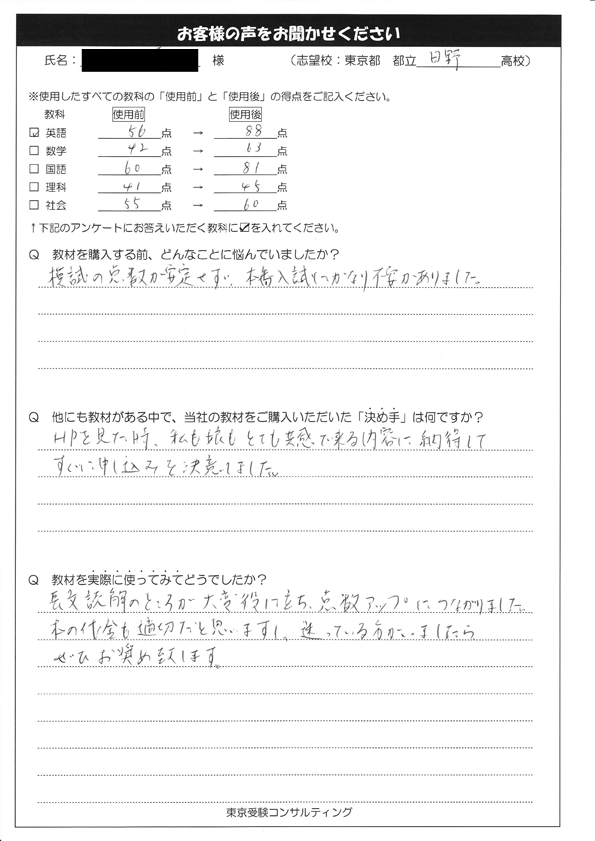 お客様の声をお聞かせください
氏名： 様 （志望校：東京都 都立 日野 高校）
※使用したすべての教科の「使用前」と「使用後」の得点をご記入ください。
教科 使用前 使用後
☑ 英語 56 点 → 88 点
□ 数学 42 点 → 63 点
□ 国語 60 点 → 81 点
□ 理科 41 点 → 45 点
□ 社会 55 点 → 60 点
↑下記のアンケートにお答えいただく教科に☑を入れてください。
Q 教材を購入する前、どんなことに悩んでいましたか？
模試の点数が安定せず、本番入試にかなり不安がありました。
Q 他にも教材がある中で、当社の教材をご購入いただいた「決め手」は何ですか？
HPを見た時、私も娘もとても共感で来る内容に納得して
すぐに申し込みを決意しました。
Q 教材を実際に使ってみてどうでしたか？
長文読解のところが大変役に立ち、点数アップにつながりました。
本の代金も適切だと思いますし、迷っている方がいましたら
ぜひお奨め致します。
東京受験コンサルティング